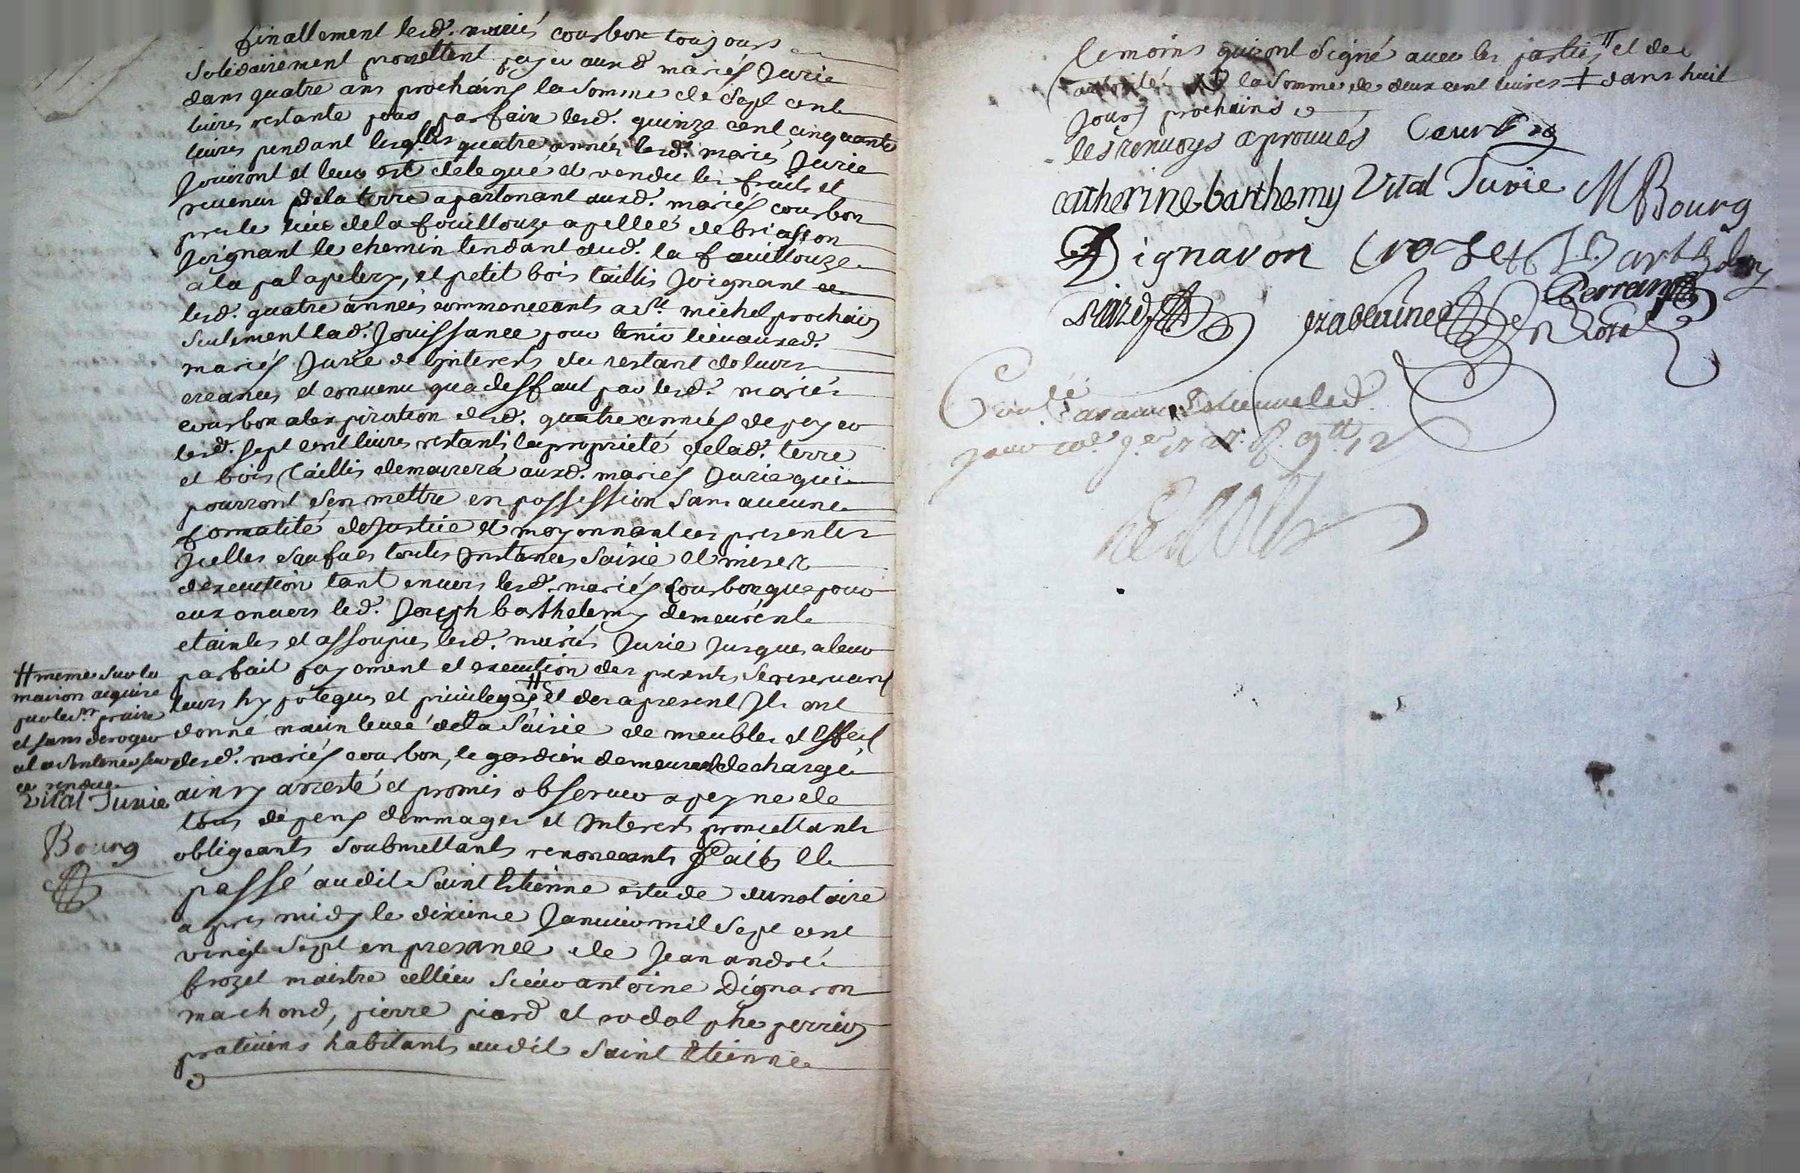 finallement lesd. mariés courbon toujours
solidairement promettent payer auxd. mariés Jurie
dans quatre ans prochains la somme de sept cent
livres restante pour parfaire lesd. quinze cent cinquante
livres pendant lesqlles quatre années lesd. mariés Jurie
Jouiront et leur est delegué et vendu les fruits et
revenus de la terre apartenant auxd. mariés courbon
pres le lieu de la fouillouze apellée de briasson
Joignant le chemin tendant dud. la fouillouze
a la palapelery, et petit bois taillis Joignant
lesd. quatre années commenceants a St. michel prochain
seulement lad. Jouissance pour tenir lieu auxd.
mariés Jurie de Interests du restant de leurs
creances et convenu qua deffaut par lesd. mariés
courbon alexpiration desd. quatre années de payer
lesd. sept cent livres restants la proprieté de lad. terre
et bois taillis demeurera auxd. mariés Jurie qui
pourront sen mettre en possession sans aucune
formalité de Justice et moyennant ces presentes
Icelles saufues toutes Instances saisie et mises
dexecution tant envers lesd. mariés Courbon que pour
eux envers led. Joseph barthelemy demeurent
etaintes et assoupies lesd. mariés Jurie Jusques a leur
parfait payement et execution des presentes se reservant
leurs hypoteques et privileges # et des apresent Ils ont
donné main levée de la saisie de meubles et effets
desd. mariés courbon, le gardien demeurant decharge
ainsy aresté et promis observer a peyne de
tous depens dommages et Interests promettants
obligeants soubmettants renonceants fait et
passé audit Saint Etienne estude du notaire
apres midy le dixieme Janvier mil sept cent
vingt sept en presence de Jean andré
crozet maistre cellier sieur antoine Dignaron
marchand, pierre piard et rodolphe perrin
praticiens habitants audit Saint Etienne
# meme sur la
maison acquise
par led. sr praire
et sans deroger
a la sentence sur
ce rendue
Vital Jurie
Bourg
temoins qui ont signé avec les parties # et de
la somme de deux cent livres ‡ dans huit
Jours prochains
les renvoys aprouvés Courbon
catherine barthemy Vital Jurie M Bourg
Dignaron Crozet Barthelemy
Perrin
piard
Controlé